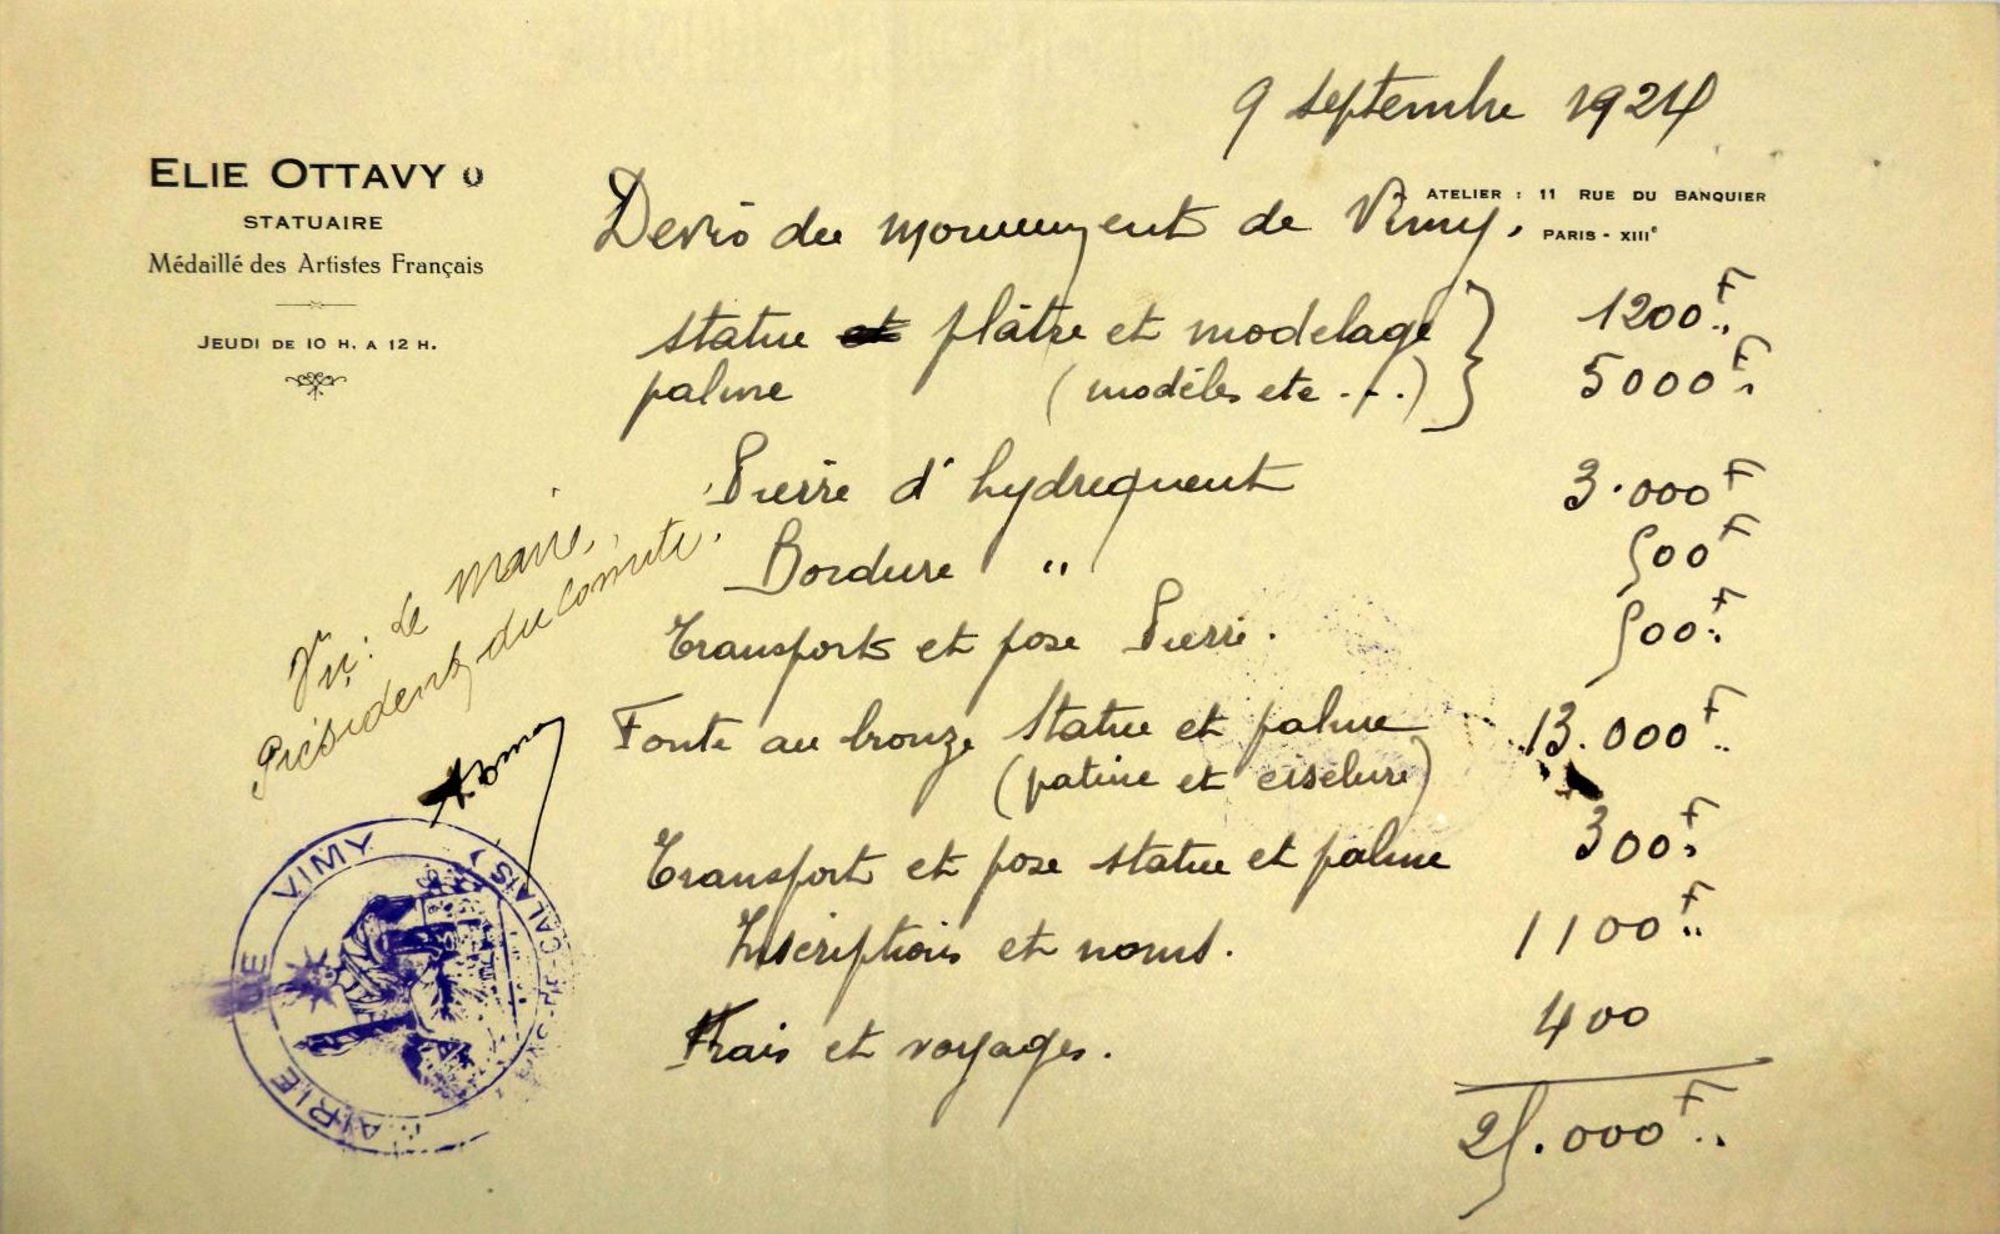 9 septembre 1924
ELIE OTTAVY
STATUAIRE
Médaillé des Artistes Français
JEUDI DE 10 H. A 12 H.
ATELIER : 11 RUE DU BANQUIER
PARIS - XIIIe
Devis du monument de Vimy.
statue et plâtre et modelage } 1200F
palme (modèles etc...) 5000F
Pierre d'hydrequent 3.000F
Bordure " 500F
Transports et pose Pierre. 500F
Fonte au bronze statue et palme 13.000F
(patine et ciselure)
Transport et pose statue et palme 300F
Inscriptions et noms. 1100F
Frais et voyages. 400
25.000F
Vu : Le Maire,
Président du Comité.
MAIRIE DE VIMY
(PAS-DE-CALAIS)